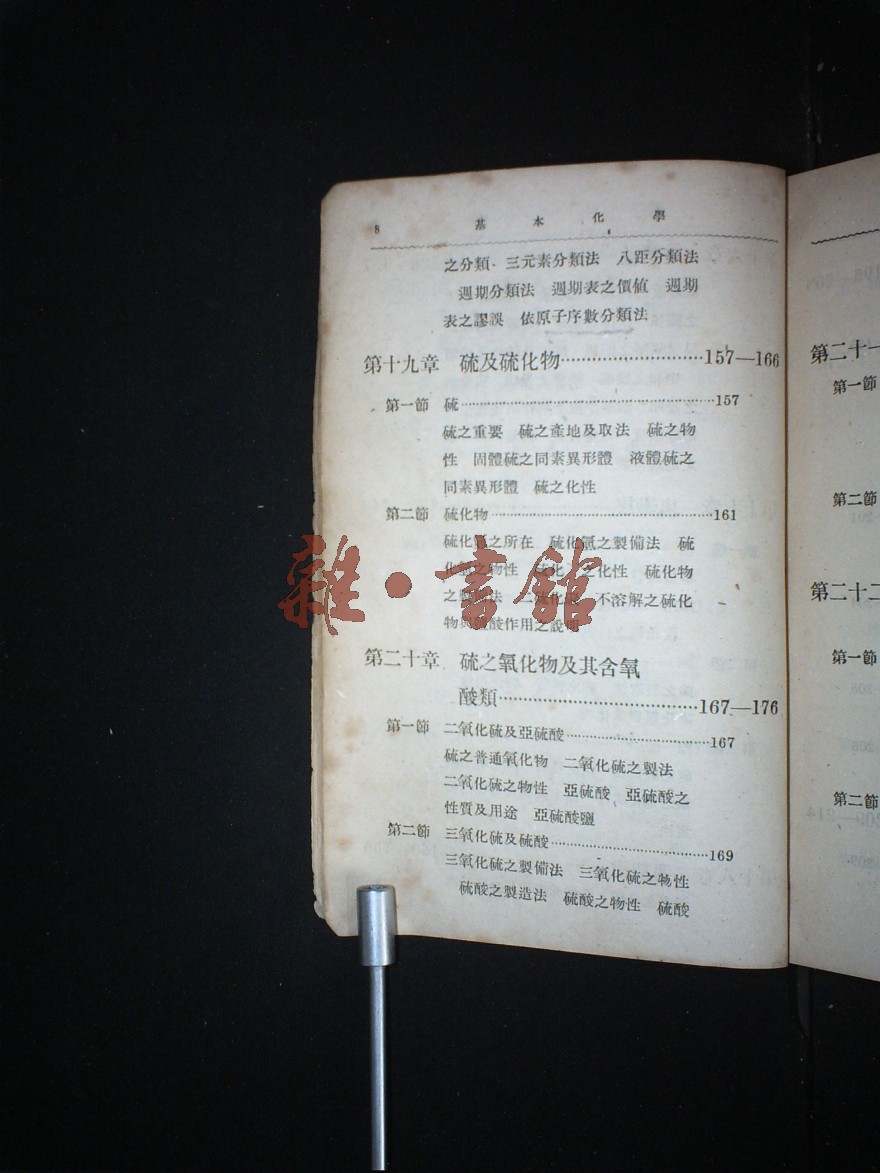 8 基本化學
之分類 三元素分類法 八距分類法
週期分類法 週期表之價値 週期
表之謬誤 依原子序數分類法
第十九章 硫及硫化物……………………157—166
第一節 硫……………………157
硫之重要 硫之產地及取法 硫之物
性 固體硫之同素異形體 液體硫之
同素異形體 硫之化性
第二節 硫化物……………………161
硫化氫之所在 硫化氫之製備法 硫
之物性 之化性 硫化物
之 法 不溶解之硫化
物 酸作用之說明
第二十章 硫之氧化物及其含氧
酸類……………………167—176
第一節 二氧化硫及亞硫酸……………………167
硫之普通氧化物 二氧化硫之製法
二氧化硫之物性 亞硫酸 亞硫酸之
性質及用途 亞硫酸鹽
第二節 三氧化硫及硫酸……………………169
三氧化硫之製備法 三氧化硫之物性
硫酸之製造法 硫酸之物性 硫酸
雜·書館
第二十一
第一節
第二節
第二十二
第一節
第二節